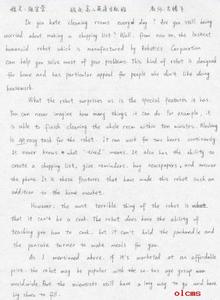 Do you hate cleaning rooms every day? Are you still being
worried about making a shopping list? Well, from now on, the lastest
humanoid robot which is manufactured by Robotics Corporation
can help you solve most of your problems. This kind of robot is designed
for home and has particular appeal for people who don't like doing
housework.
What the robot surprises us is the special features it has.
You can never imagine how many things it can do for example, it
is able to finish cleaning the whole room within ten minutes. Nothing
is an easy task for the robot. It can wait for two hours continuously.
It never knows what "tired" means. It also has the ability to
create a shopping list, give reminders, buy newspapers, and answer
the phone. It is these features that have made this robot such an
addition to the home market.
However, the most terrible thing of the robot is
that it can't be a cook. The robot does have the ability of
teaching you how to cook, but it can't hold the panhandle and
the pancake turner to make meals for you.
As I mentioned above, if it's marketed at an affordable
price, the robot may be popular with the age group
worldwide. But the scientists still have a long way to go and have
big shoes to fill.
olcms